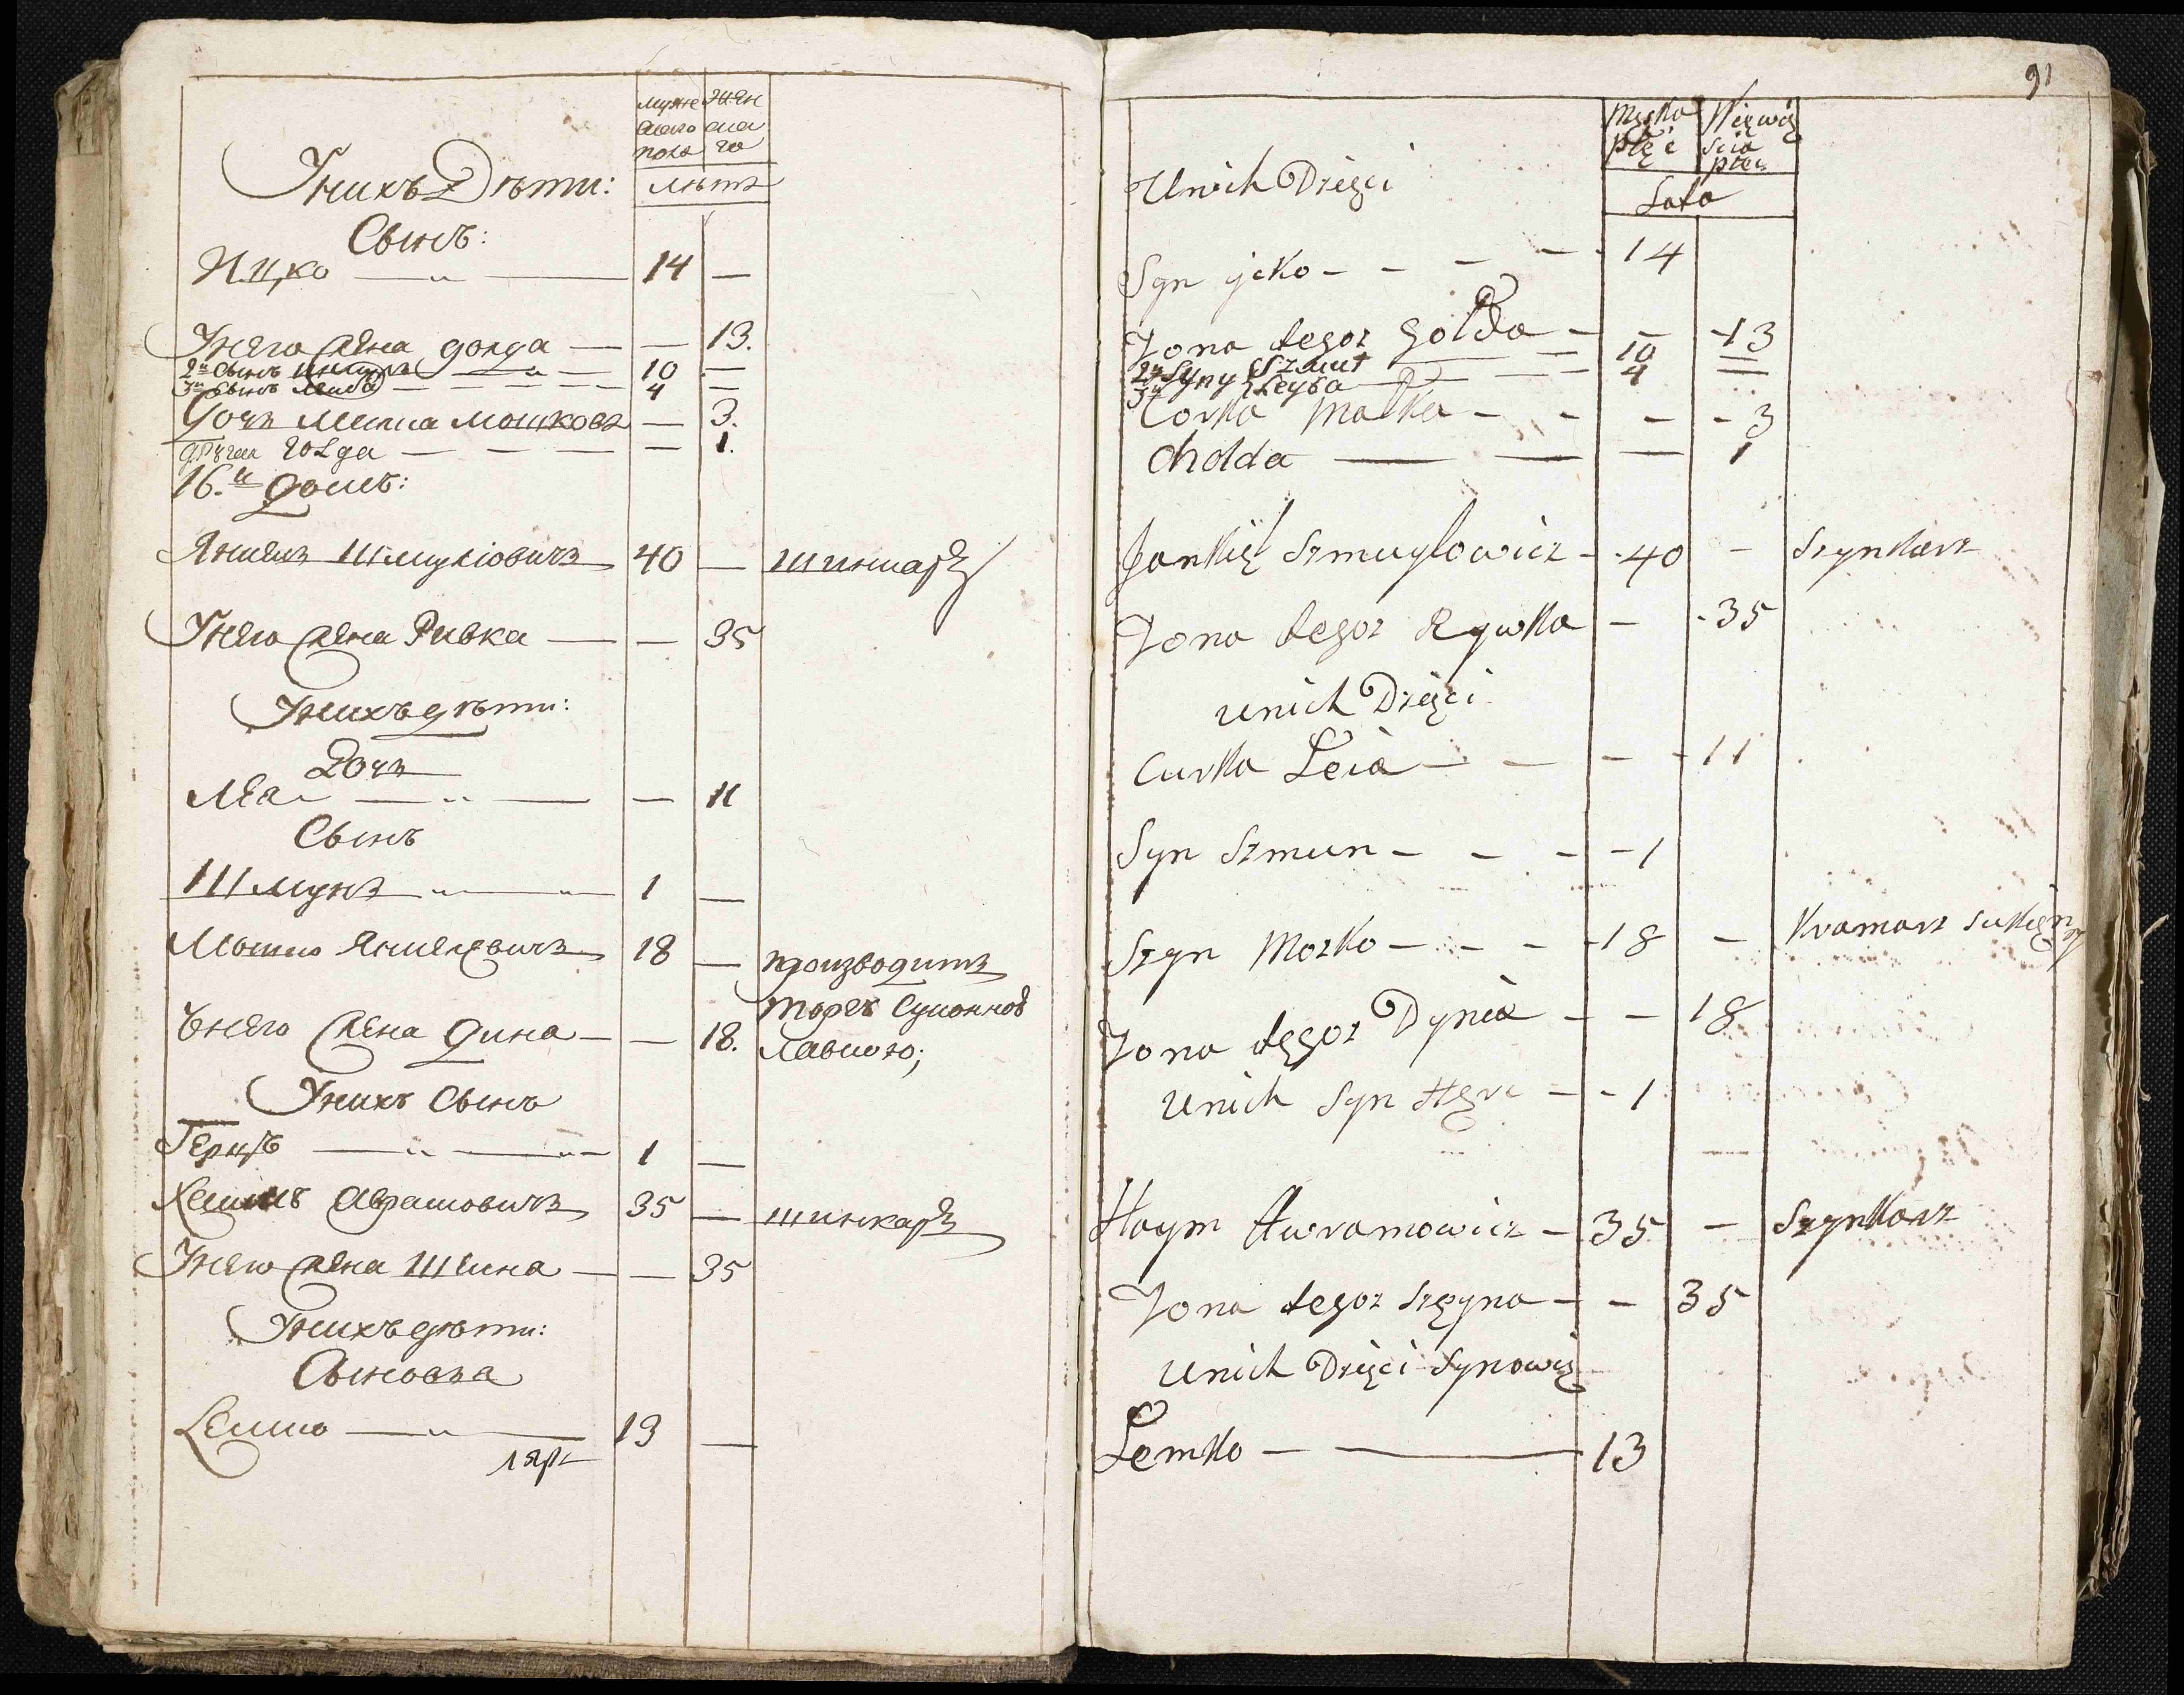 мужескаго пола
женскаго
лѣтъ
У нихъ Дѣти:
Сынъ:
Ицко 14 —
У него жена голда — 13.
2й Сынъ 10 —
3й Сынъ Лейба 4 —
Дочь Мошкова — 3.
другая голда — 1.
16.й Домъ:
Янкель Шмуліовичъ 40 — шинкаръ
У него жена Ривка — 35
У нихъ дѣти:
Дочь
Леа — 11
Сынъ
Шмунъ 1 —
Мошко Янкелевичъ 18 — производитъ
торгъ Суконной
лавкою;
Ѹ него жена Дина — 18.
У нихъ Сынъ
Герцъ 1 —
Хаимъ Аврамовичъ 35 — шинкаръ
У него жена Шейна — 35
У нихъ дѣти:
Сыновья
Лемко 13 —
91
Męska płci
Niewieścia płci
Lata
Unich Dzięci
Syn jcko - - - - 14
Zona tegoz Golda - - - 13
2y Syny Szmul 10 —
3y Leyba 4 —
Corka Malka - - - - 3
Cholda — — — 1
Jankięl Szmuylowicz - 40 - Szynkarz
Zona tegoz Rywka - - 35
unich Dzięci
Curka Leia - - - - 11
Syn Szmun - - - - 1
Szyn Mozko - - - - 18 - Kramarz sukięny
Zona tęgoz Dynia - - 18
Unich Syn Hęrc - - 1
Haym Awramowicz - 35 - Szynkarz
Zona tegoz Szęyna - - 35
Unich Dzięci Synowię
Lemko — — 13